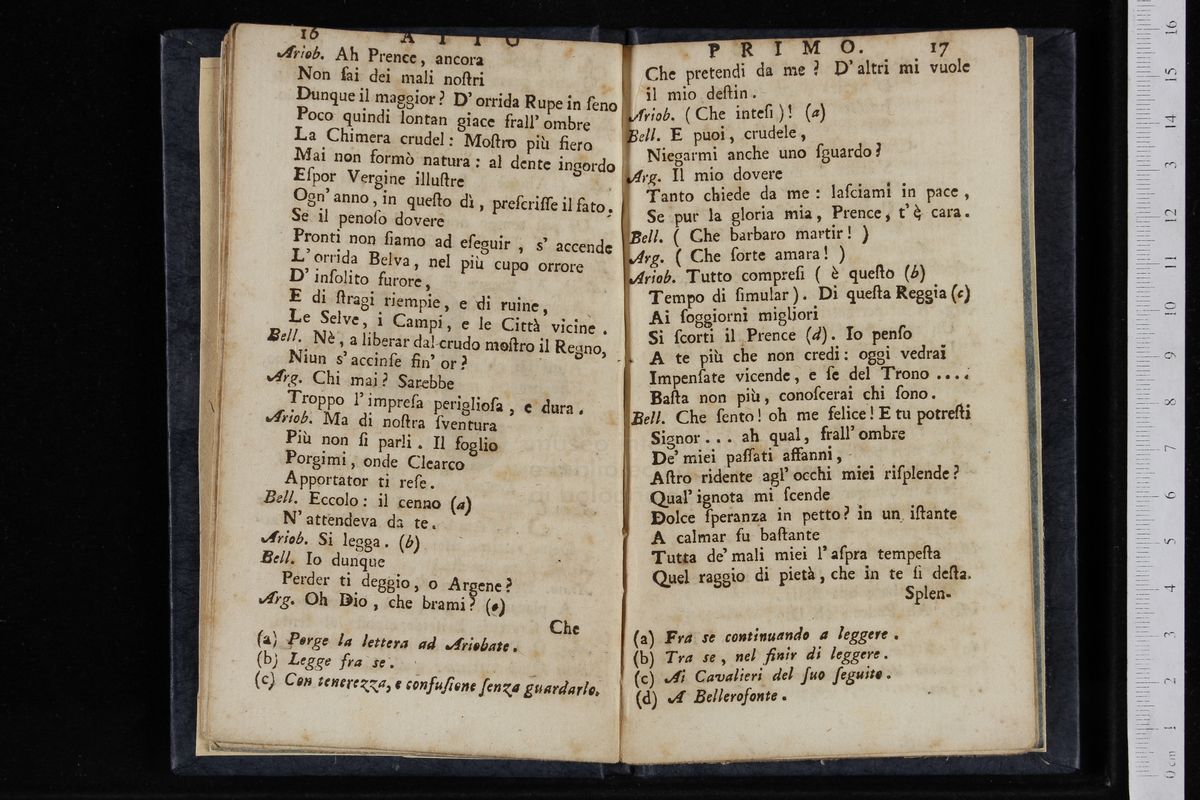 16 ATTO
Ariob. Ah Prence, ancora
Non ſai dei mali noſtri
Dunque il maggior? D'orrida Rupe in ſeno
Poco quindi lontan giace frall'ombre
La Chimera crudel: Moſtro più fiero
Mai non formò natura: al dente ingordo
Eſpor Vergine illuſtre
Ogn'anno, in queſto dì, preſcriſſe il fato.
Se il penoſo dovere
Pronti non ſiamo ad eſeguir, s'accende
L'orrida Belva, nel più cupo orrore
D'inſolito furore,
E di ſtragi riempie, e di ruine,
Le Selve, i Campi, e le Città vicine.
Bell. Nè, a liberar dal crudo moſtro il Regno,
Niun s'accinſe fin'or?
Arg. Chi mai? Sarebbe
Troppo l'impreſa periglioſa, e dura.
Ariob. Ma di noſtra ſventura
Più non ſi parli. Il foglio
Porgimi, onde Clearco
Apportator ti reſe.
Bell. Eccolo: il cenno (a)
N'attendeva da te.
Ariob. Si legga. (b)
Bell. Io dunque
Perder ti deggio, o Argene?
Arg. Oh Dio, che brami? (c)
Che
(a) Porge la lettera ad Ariobate.
(b) Legge fra se.
(c) Con tenerezza, e confuſione ſenza guardarlo.
PRIMO. 17
Che pretendi da me? D'altri mi vuole
il mio deſtin.
Ariob. (Che inteſi)! (a)
Bell. E puoi, crudele,
Niegarmi anche uno ſguardo?
Arg. Il mio dovere
Tanto chiede da me: laſciami in pace,
Se pur la gloria mia, Prence, t'è cara.
Bell. (Che barbaro martir!)
Arg. (Che ſorte amara!)
Ariob. Tutto compreſi (è queſto (b)
Tempo di ſimular). Di queſta Reggia (c)
Ai ſoggiorni migliori
Si ſcorti il Prence (d). Io penſo
A te più che non credi: oggi vedrai
Impenſate vicende, e ſe del Trono ....
Baſta non più, conoſcerai chi ſono.
Bell. Che ſento! oh me felice! E tu potreſti
Signor... ah qual, frall'ombre
De' miei paſſati affanni,
Aſtro ridente agl'occhi miei riſplende?
Qual'ignota mi ſcende
Dolce ſperanza in petto? in un iſtante
A calmar fu baſtante
Tutta de' mali miei l'aſpra tempeſta
Quel raggio di pietà, che in te ſi deſta.
Splen-
(a) Fra se continuando a leggere.
(b) Tra se, nel finir di leggere.
(c) Ai Cavalieri del ſuo ſeguito.
(d) A Bellerofonte.
0 cm 1 2 3 4 5 6 7 8 9 10 11 12 13 14 15 16